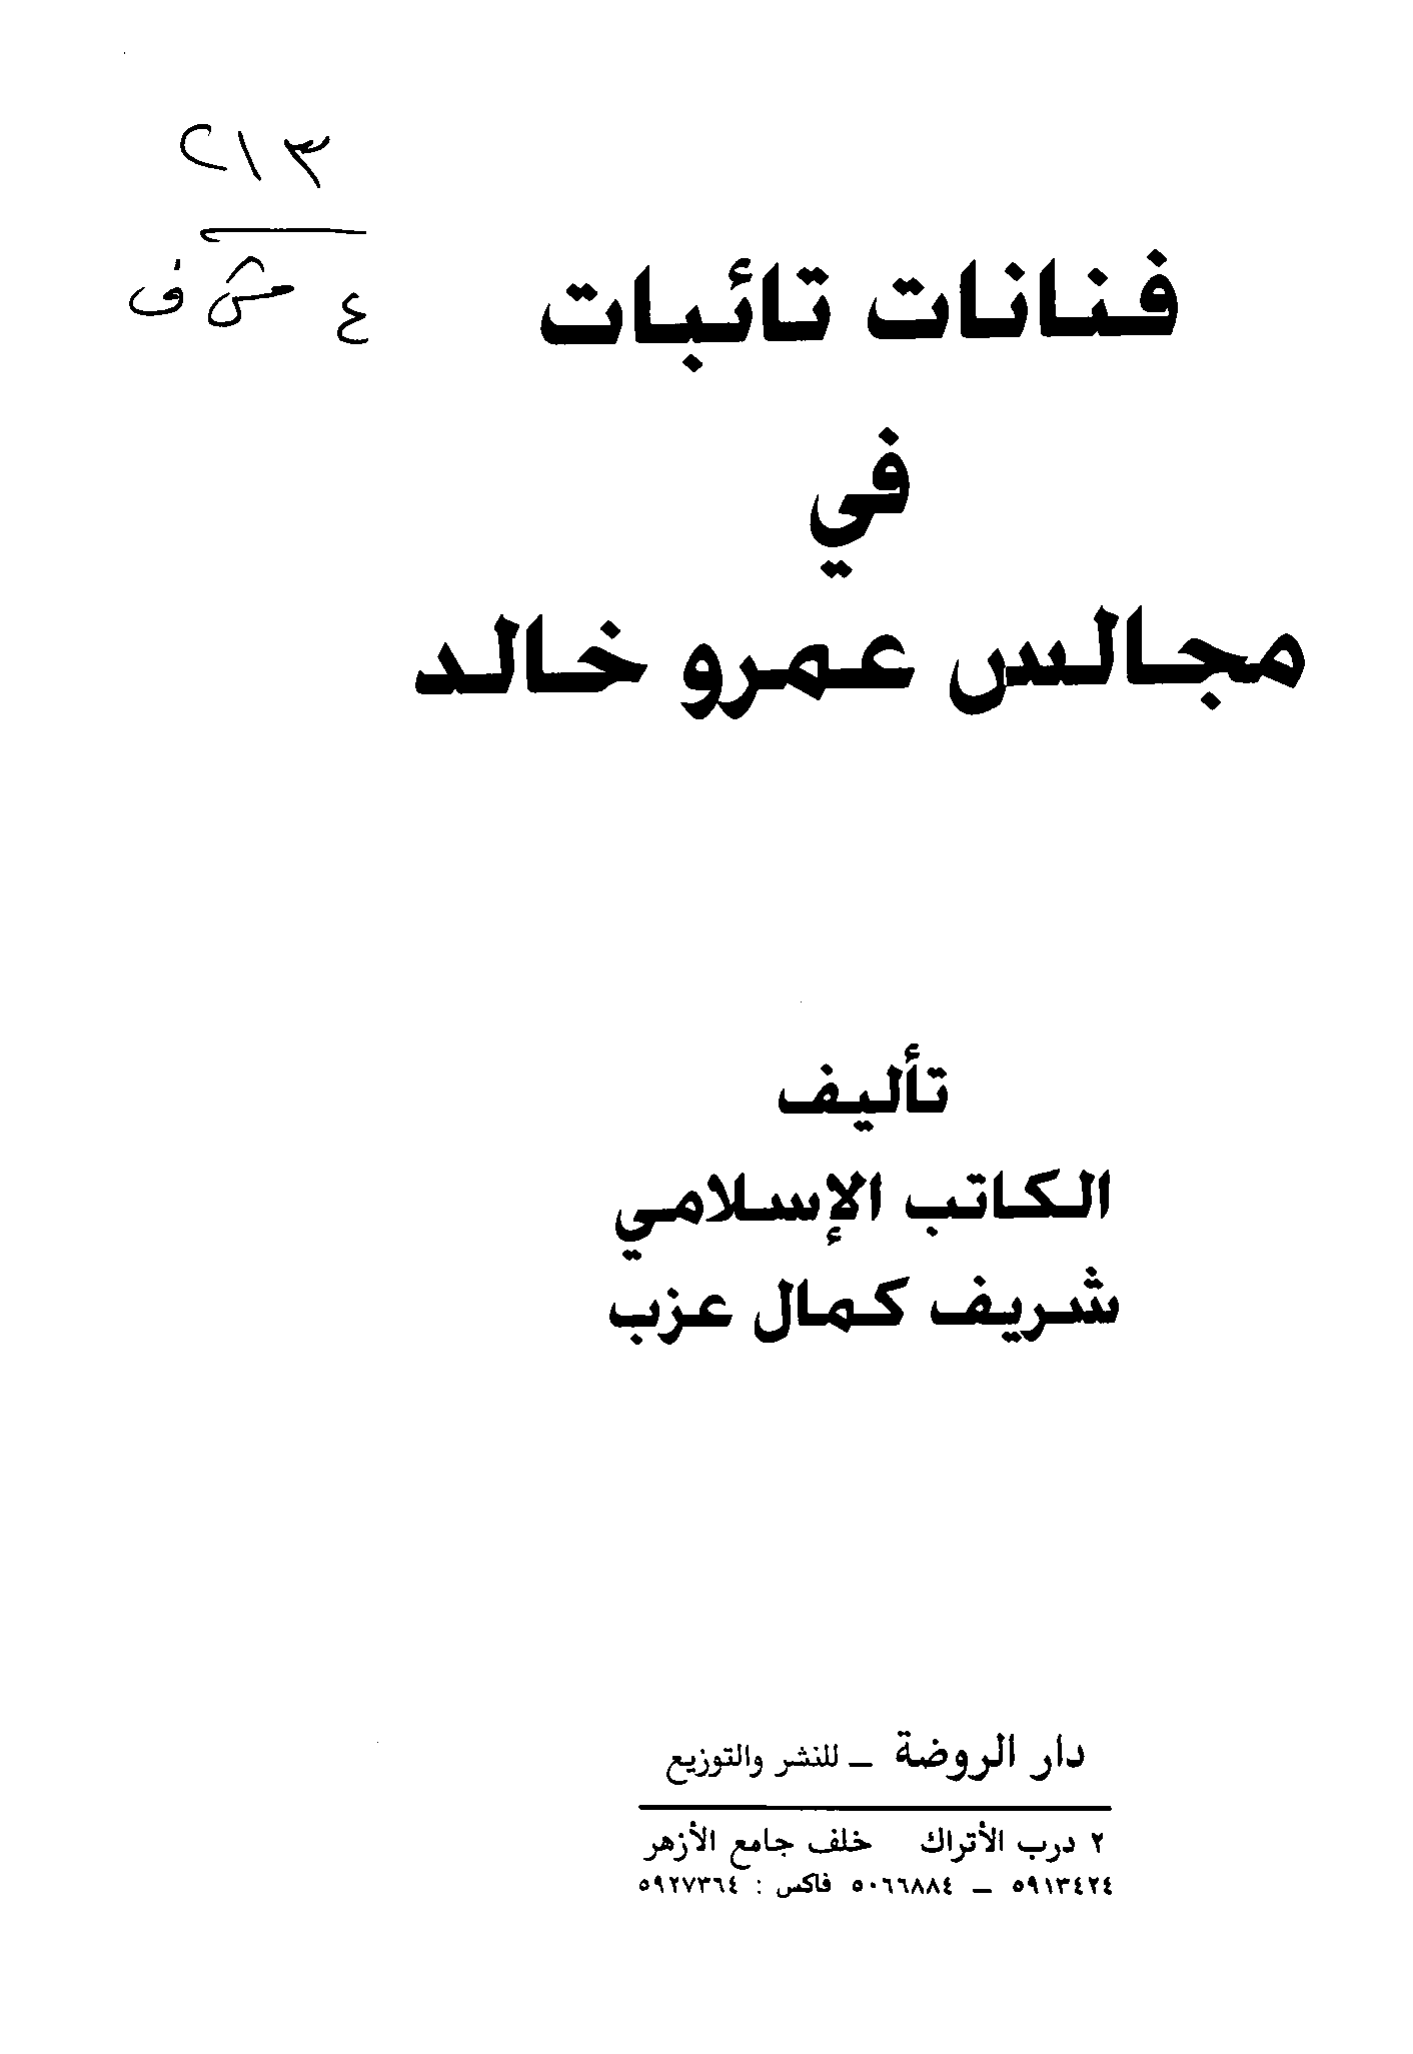 ٢١٣
ع ش ف
فنانات تائبات
في
مجالس عمرو خالد
تأليف
الكاتب الإسلامي
شريف كمال عزب
دار الروضة ـ للنشر والتوزيع
٢ درب الأتراك خلف جامع الأزهر
٥٩١٣٤٢٤ ـ ٥٠٦٦٨٨٤ فاكس : ٥٩٢٧٣٦٤